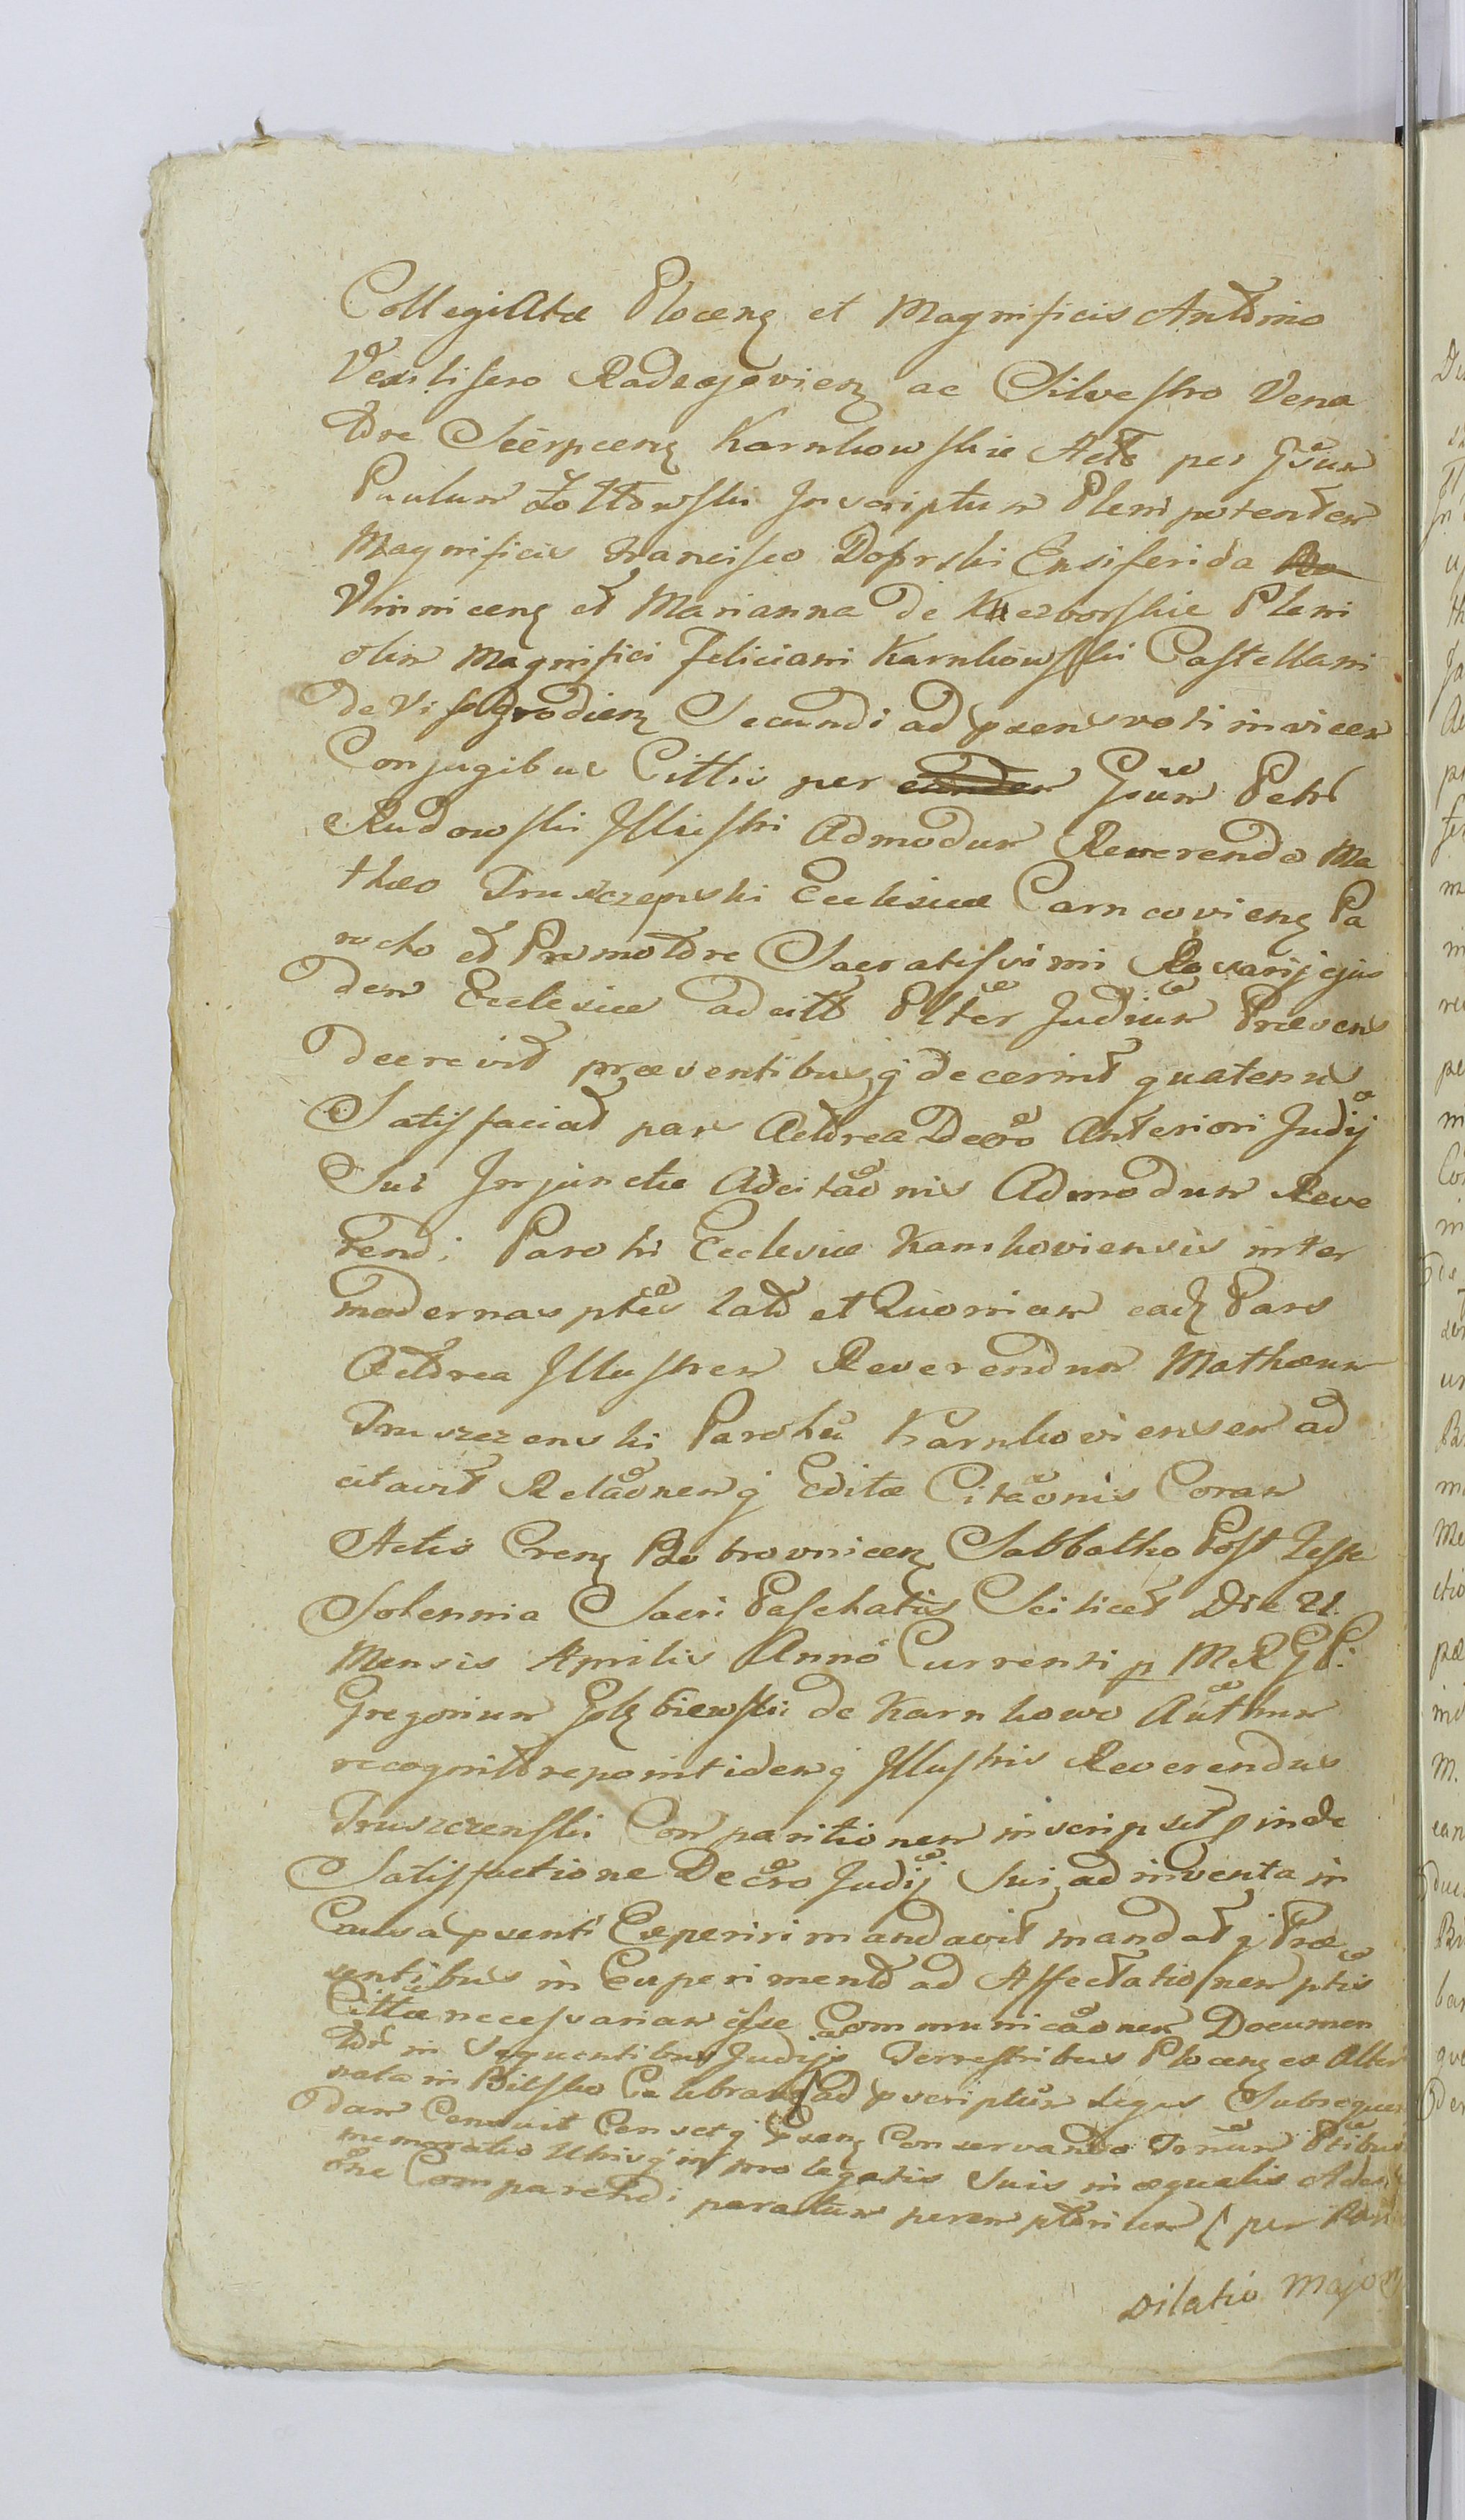 Collegiatæ Plocenȝ et Magnificis Antonio
Vexilifero Radziejovienȝ ac Silvestro Vena
tore Sierpcenȝ Karnkowskie Acto per Gsum
Paulum Zołtowski Inscriptum Plenipotentem
Magnificis Francisco Doprski Ensiferida
Vinnicenȝ et Marianna de Kiezborskie Pleni
olim Magnifici Feliciani Karnkowski Castellani
de Visogrodienȝ Secundi ad prens voti invicem
Conjugibus Cittis per eundem Gsum Petr
Rudowski Illustri Admodum Reverendo Ma
thæo Truszczenski Ecclesiæ Carncovienȝ Pa
rocho et Promotore Sacratissimi Rosarij ejus
dem Ecclesiæ adcitto Plter Judium Præsens
decrevit præsentibusq decernit quatenus
Satisfaciat pars Actorea Decro Anteriori Judij
Sui Injunctæ Adcitaonis Admodum Reve
rendi Parohi Ecclesiæ Karnkoviensis inter
modernas ptes lato et Quoniam eadȝ Pars
Actorea Illustrem Reverendum Mathæum
Truszczenski Parohu Karnkoviensem ad
citavit Relaonemq Editæ Citaonis Coram
Actis Crenȝ Bobrovnicenȝ Sabbatho Post Festa
Solennia Sacri Paschatis Scilicet Die 21.
Mensis Aprilis Anno Currenti p MRGP.
Gregorium Golȝbiewski de Karnkowo Authum
recognito reponit idemq Illustris Reverendus
Truszczenski Comparitionem inscripsit p inde
Satisfactione Decro Judij Sui ad inventa in
Causa psenti Experiri mandavit mandatq Præ
sentibus in Experimento ad Affectationem ptis
Cittæ necessariam esse Communicaonem Documen
tor in Sequentibus Judijs Terrestribus Plocenȝ ex Alter
nata in Bilsko Celebran ad pscriptum Legis Subsequen
dam Censuit Censetq Psenȝ Conservando Trnum Ptibus
memoratio Utrisq in pro legatis Suis in æqualis Adcit
one Comparendi paratum peremptorium per Par
Dilatio Major